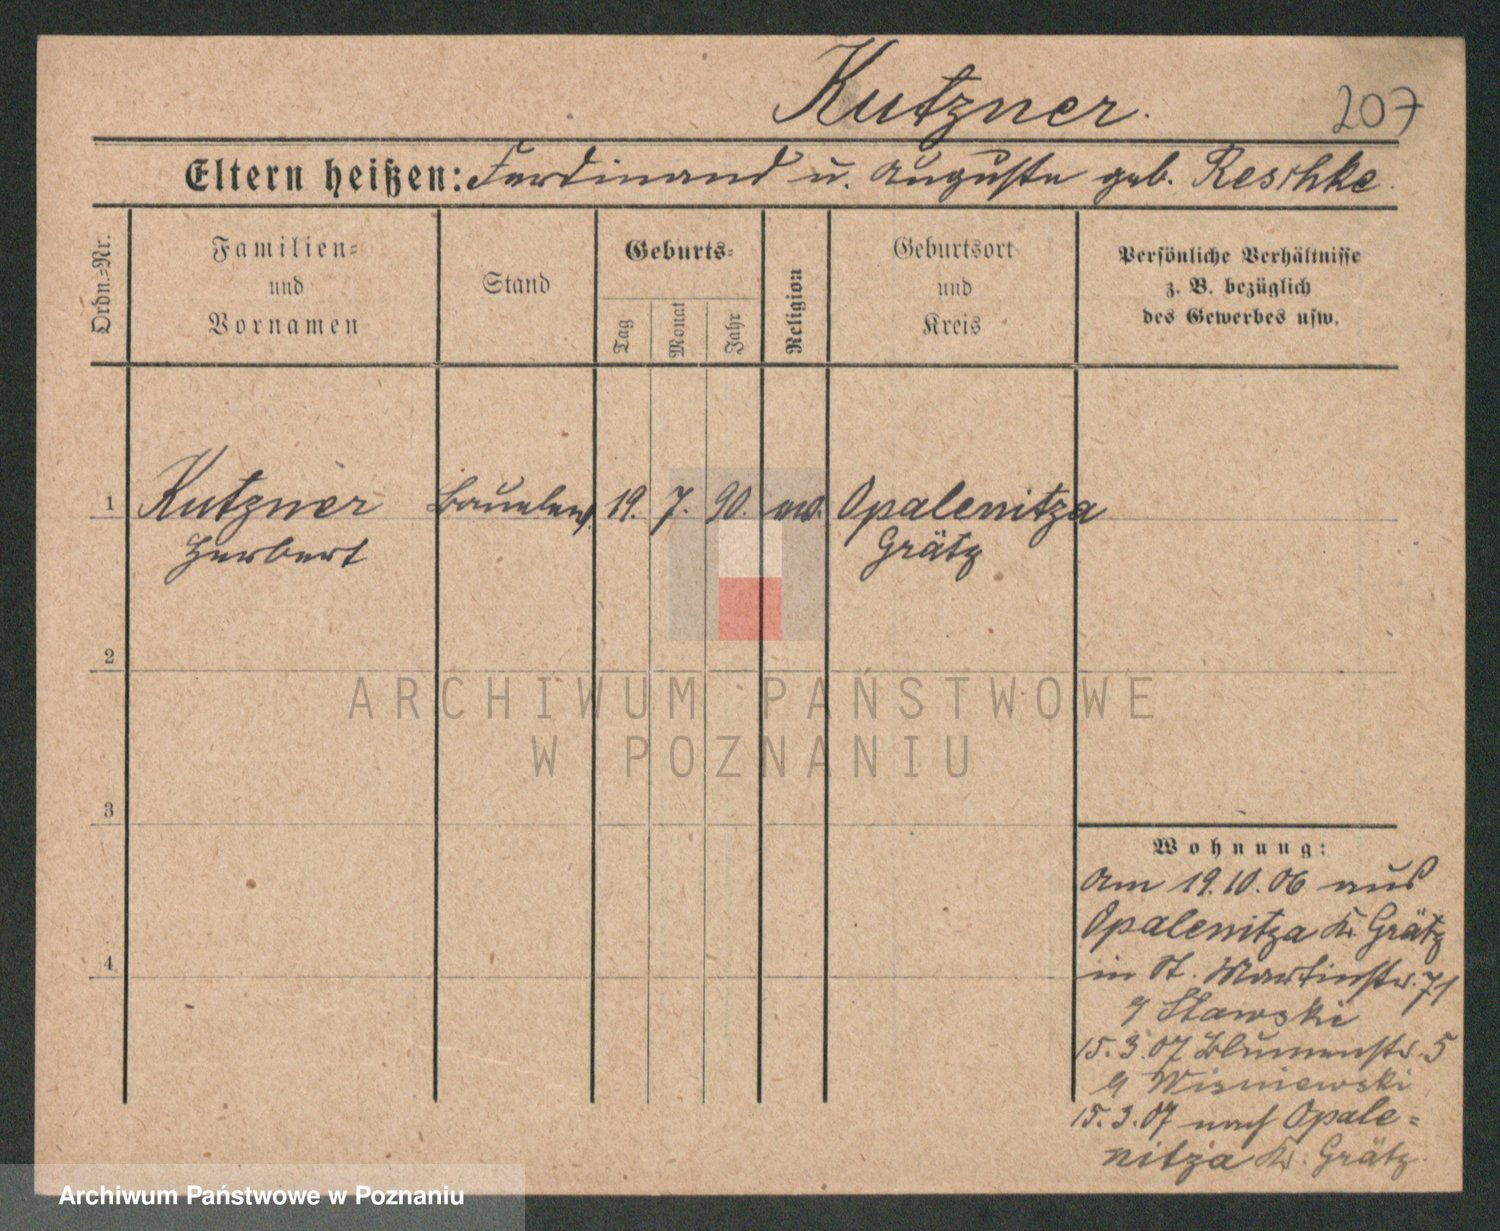 Kutzner.
207
Eltern heißen: Ferdinand u. Auguste geb. Reschke.
Ordn.=Nr.
Familien=
und
Vornamen
Stand
Geburts=
Tag
Monat
Jahr
Religion
Geburtsort
und
Kreis
Persönliche Verhältnisse
z. B. bezüglich
des Gewerbes usw.
1
Kutzner
Herbert
19. 7. 90.
Opalenitza
Grätz
2
ARCHIWUM PAŃSTWOWE
W POZNANIU
3
Wohnung:
am 19.10.06 aus
Opalenitza Kr. Grätz
in St. Martinstr. 71
Stawski
15. 3. 07 Blumenstr. 5
Wisniewski
15. 3. 07 nach Opale=
nitza Kr. Grätz.
4
Archiwum Państwowe w Poznaniu